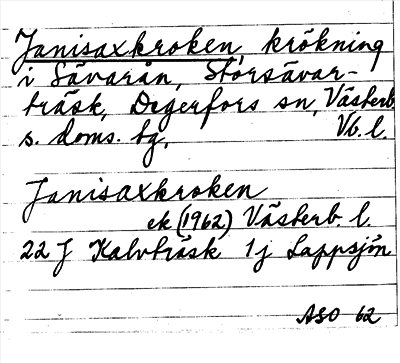 Janisaxkroken, krökning
i Sävarån, Storsävar-
träsk, Degerfors sn, Västerb
s. doms. tg, Vb. l.
Janisaxkroken
ek (1962) Västerb. l.
22 J Kalvträsk 1j Lappsjön
ASO 62